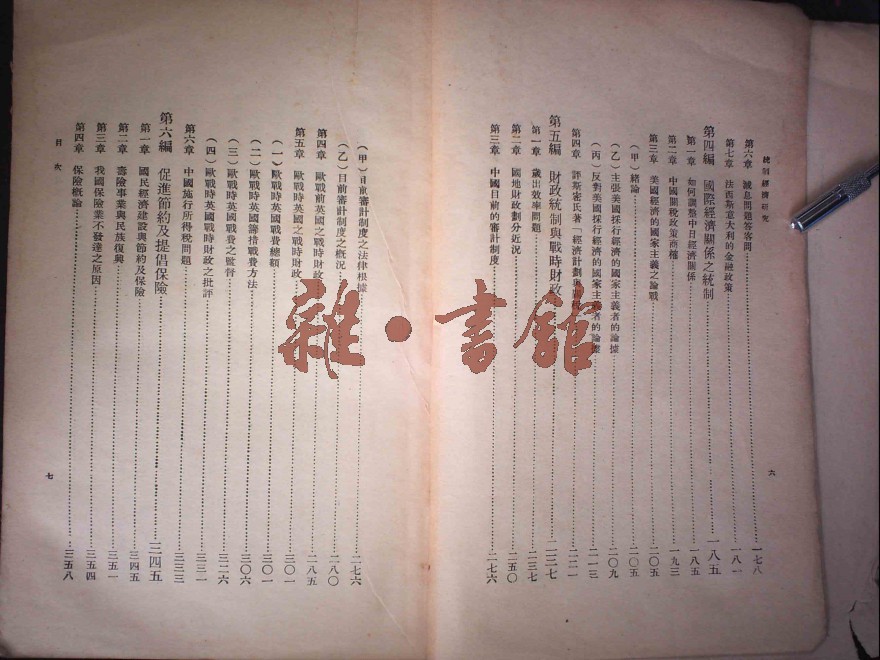 統制經濟研究
第六章 減息問題答客問……一七八
第七章 法西斯意大利的金融政策……一八一
第四編 國際經濟關係之統制……一八五
第一章 如何調整中日經濟關係……一八五
第二章 中國關稅政策商榷……一九三
第三章 美國經濟的國家主義之論戰……二〇五
(甲)緒論……二〇五
(乙)主張美國採行經濟的國家主義者的論據……二〇九
(丙)反對美國採行經濟的國家主義者的論據……二一三
第四章 評斯密氏著「經濟計劃與……二二一
第五編 財政統制與戰時財政……二三七
第一章 歲出效率問題……二三七
第二章 國地財政劃分近況……二五〇
第三章 中國目前的審計制度……二七六
六
(甲)目前審計制度之法律根據……二七六
(乙)目前審計制度之概況……二八〇
第四章 歐戰前英國之戰時財政……二八五
第五章 歐戰時英國之戰時財政……三〇一
(一)歐戰時英國戰費總額……三〇一
(二)歐戰時英國籌措戰費方法……三〇六
(三)歐戰時英國戰費之監督……三二六
(四)歐戰時英國戰時財政之批評……三三一
第六章 中國施行所得稅問題……三三三
第六編 促進節約及提倡保險……三四五
第一章 國民經濟建設與節約及保險……三四五
第二章 壽險事業與民族復興……三五一
第三章 我國保險業不發達之原因……三五四
第四章 保險概論……三五八
目次
七
雜·書館